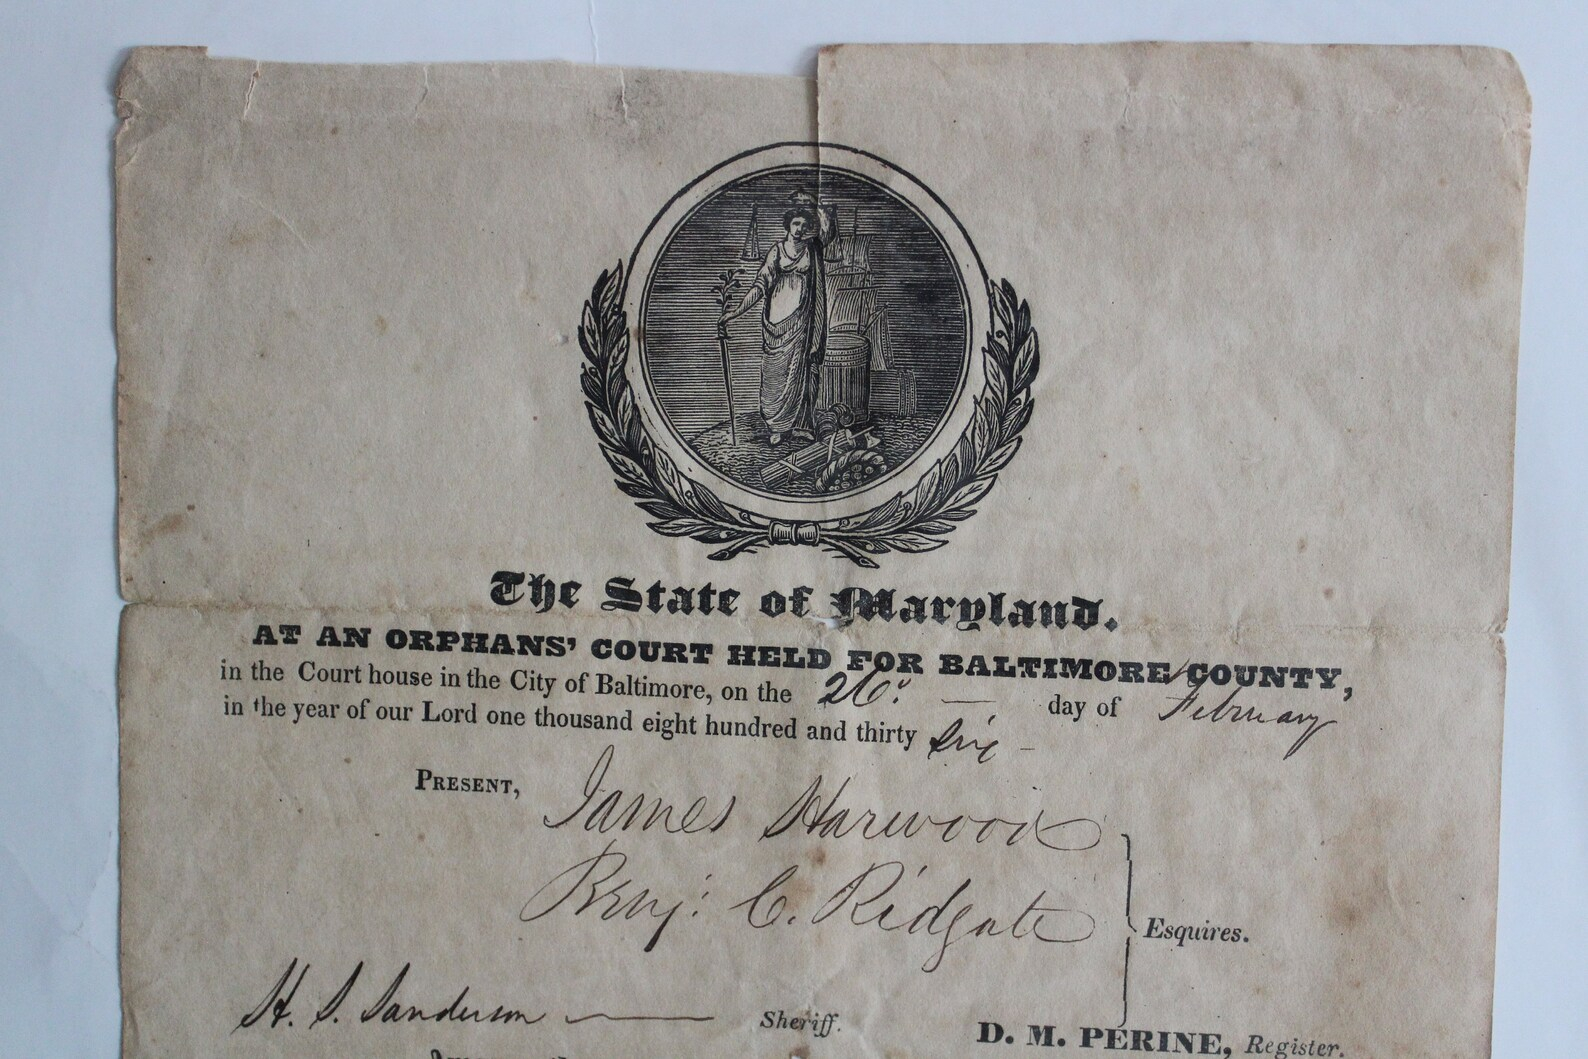 The State of Maryland.
AT AN ORPHANS' COURT HELD FOR BALTIMORE COUNTY,
in the Court house in the City of Baltimore, on the 26. — day of February
in the year of our Lord one thousand eight hundred and thirty six –
PRESENT, James Harwood
Benj: C. Ridgate
Esquires.
H. S. Sanderson — Sheriff.
D. M. PERINE, Register.